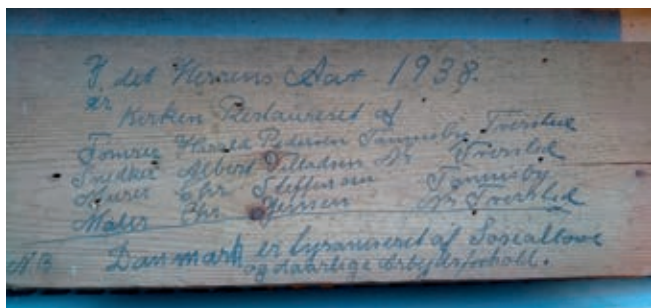 I det Herrens Aar 1938.
er Kirken Restaureret af
Tømrer Harald Pedersen Tannisby Tversted
Snedker Albert Villadsen Nr Tversted
Murer Chr Steffensen Tannisby
Maler Chr Jensen Nr Tversted
NB Danmark er tyraniseret af Sosiallove
og daarlige Arbejdsforhold.